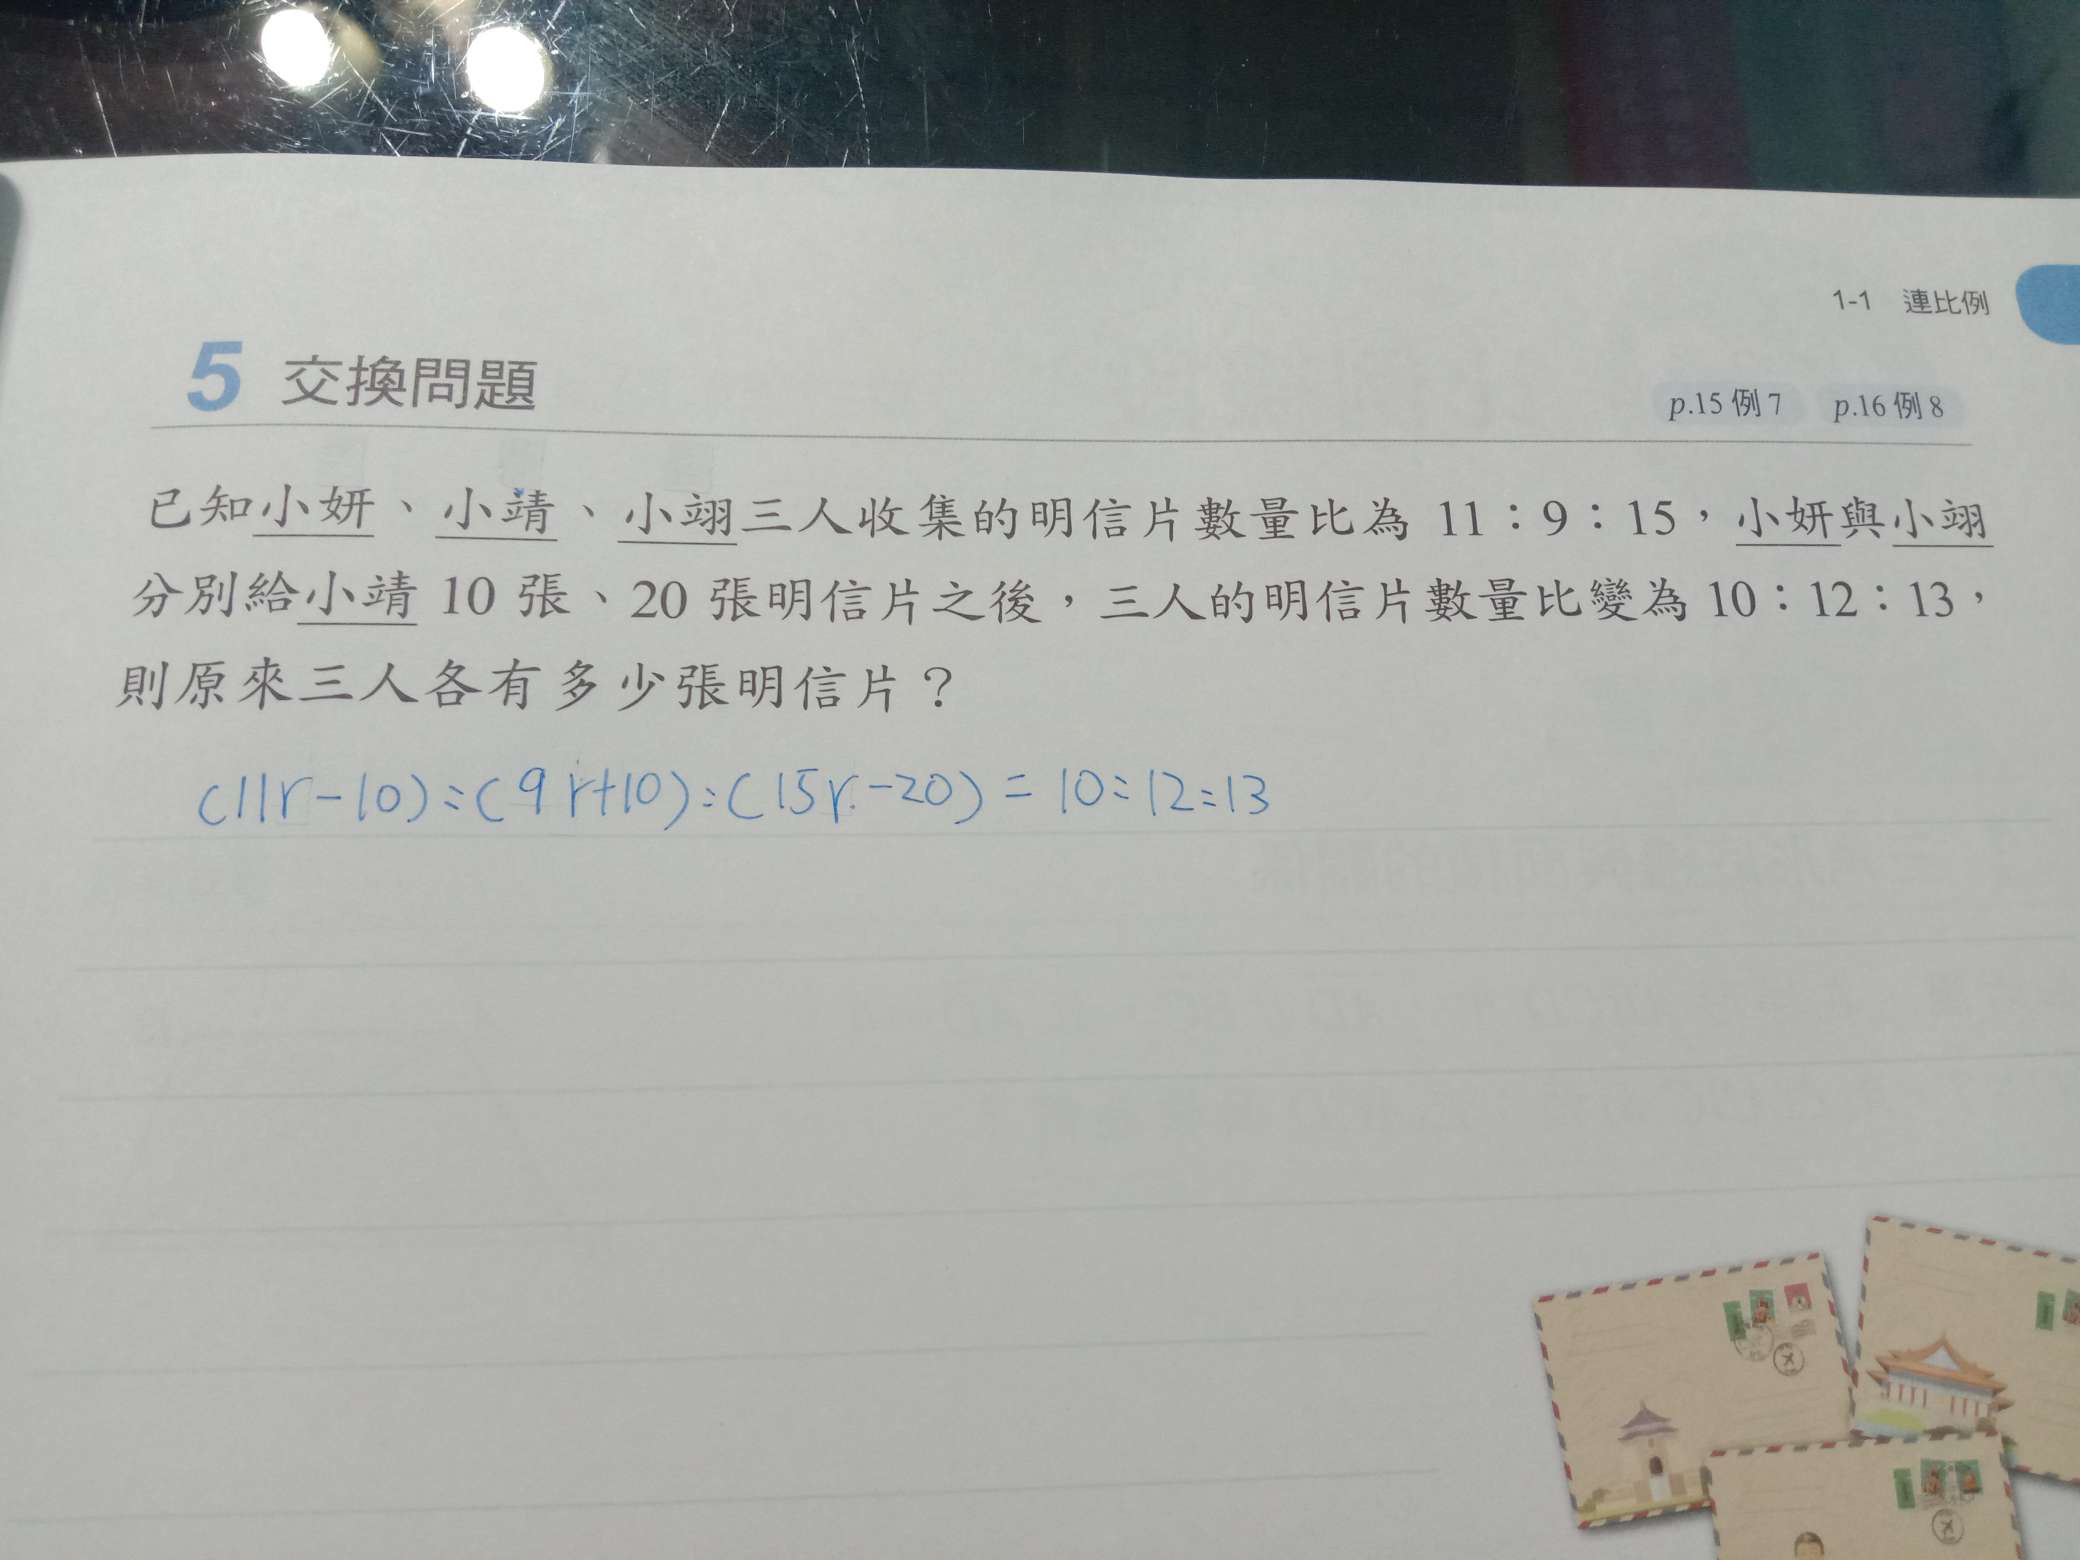 1-1 連比例
5 交換問題
p.15 例 7 p.16 例 8
已知小妍、小靖、小翊三人收集的明信片數量比為 11:9:15,小妍與小翊
分別給小靖 10 張、20 張明信片之後,三人的明信片數量比變為 10:12:13,
則原來三人各有多少張明信片?
(11r-10):(9r+10):(15r-20)=10:12:13